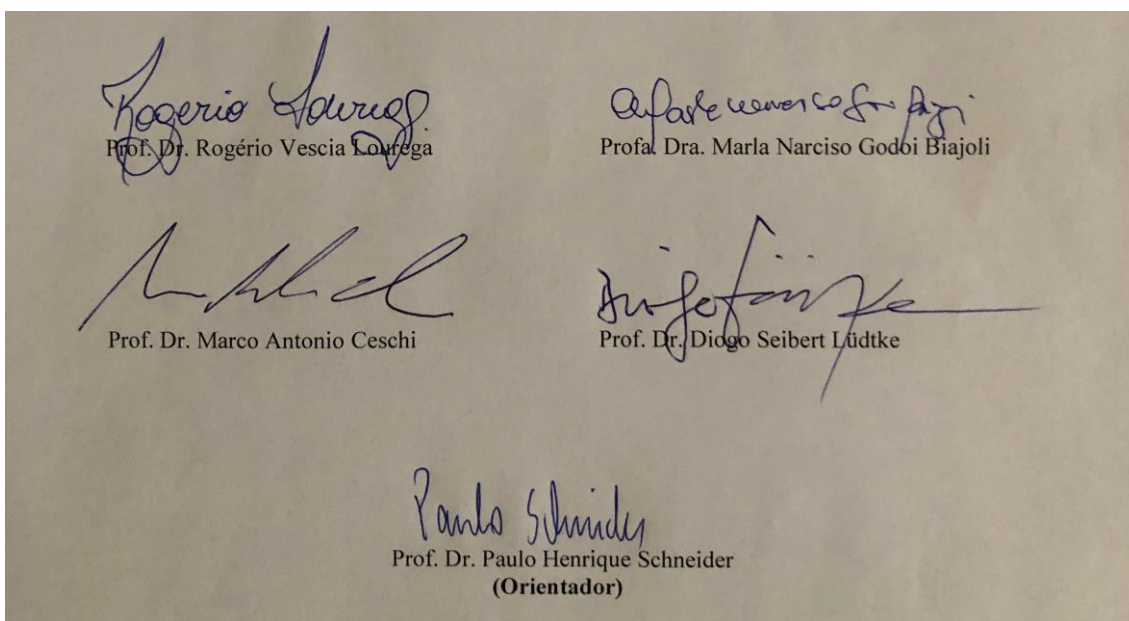 Rogerio Lourega
Prof. Dr. Rogério Vescia Lourega
Profa. Dra. Marla Narciso Godoi Biajoli
Prof. Dr. Marco Antonio Ceschi
Prof. Dr. Diogo Seibert Lüdtke
Paulo Schneider
Prof. Dr. Paulo Henrique Schneider
(Orientador)